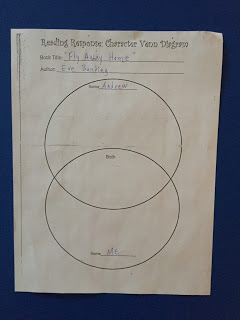 Reading Response: Character Venn Diagram
Book Title: "Fly Away Home"
Author: Eve Bunting
Name Andrew
Both
Name Me